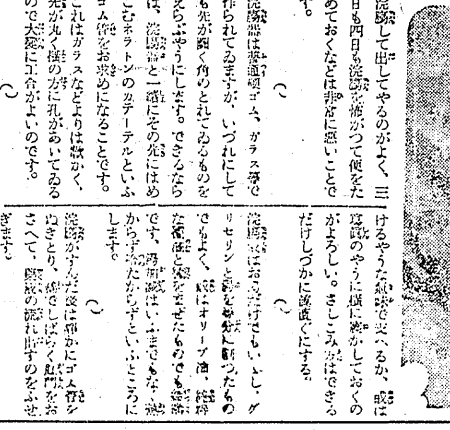 浣腸して出してやるのがよく、三
日も四日も浣腸を怖がつて便をた
めておくなどは非常に悪いことで
す。
浣腸器は普通硬ゴム、ガラス等で
作られてゐますが、いづれにして
も先が細く角のとれてゐるものを
えらぶやうにします。できるなら
ば、浣腸器と一緒にその先にはめ
こむネラトンのカテーテルといふ
ゴム管をお求めになることです。
これはガラスなどよりは軟かく、
先が丸く横の方に孔があいてゐる
ので大変に工合がよいのです。
けるやうな気味で支へるか、或は
寫眞のやうに横に寝かしておくの
がよろしい。さしこみ方はできる
だけしづかに眞直ぐにする。
浣腸液はお湯だけでもいゝし、グ
リセリンと湯を等分に割つたもの
でもよく、或はオリーブ油、
な
と湯をまぜたものでも
です。湯加減はいふまでもなく熱
からず冷たからずといふところに
します。
浣腸がすんだ後は静かにゴム管を
ぬきとり、綿でしばらく肛門をお
さへて、浣腸の流れ出すのをふせ
ぎます。